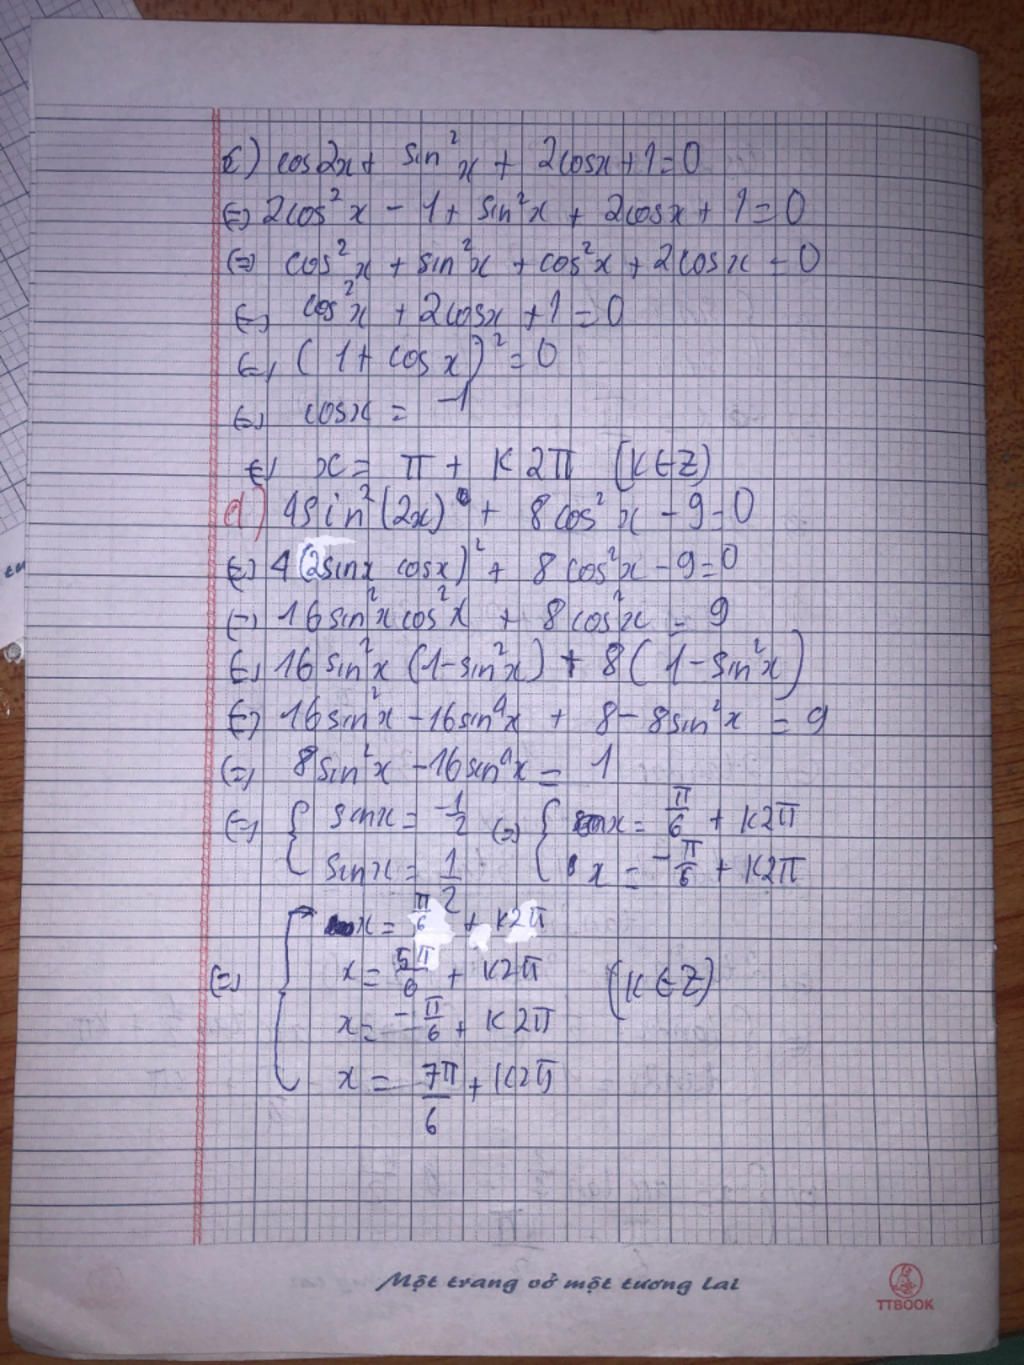 c) cos2x + sin²x + 2cosx + 1 = 0
(=) 2cos²x - 1 + sin²x + 2cosx + 1 = 0
(=) cos²x + sin²x + cos²x + 2cosx = 0
(=) cos²x + 2cosx + 1 = 0
(=) (1 + cosx)² = 0
(=) cosx = -1
(=) x = π + K2π (K∈Z)
d) 4sin²(2x) + 8cos²x - 9 = 0
(=) 4(2sinx cosx)² + 8cos²x - 9 = 0
(=) 16sin²xcos²x + 8cos²x = 9
(=) 16sin²x(1-sin²x) + 8(1-sin²x)
(=) 16sin²x - 16sin⁴x + 8 - 8sin²x = 9
(=) 8sin²x - 16sin⁴x = 1
(=) { sinx = -1/2 (=) { x = π/6 + K2π
sinx = 1/2 x = -π/6 + K2π
(=) { x = π/6 + K2π
x = 5π/6 + K2π (K∈Z)
x = -π/6 + K2π
x = 7π/6 + K2π
Một trang vở một tương lai
TTBOOK